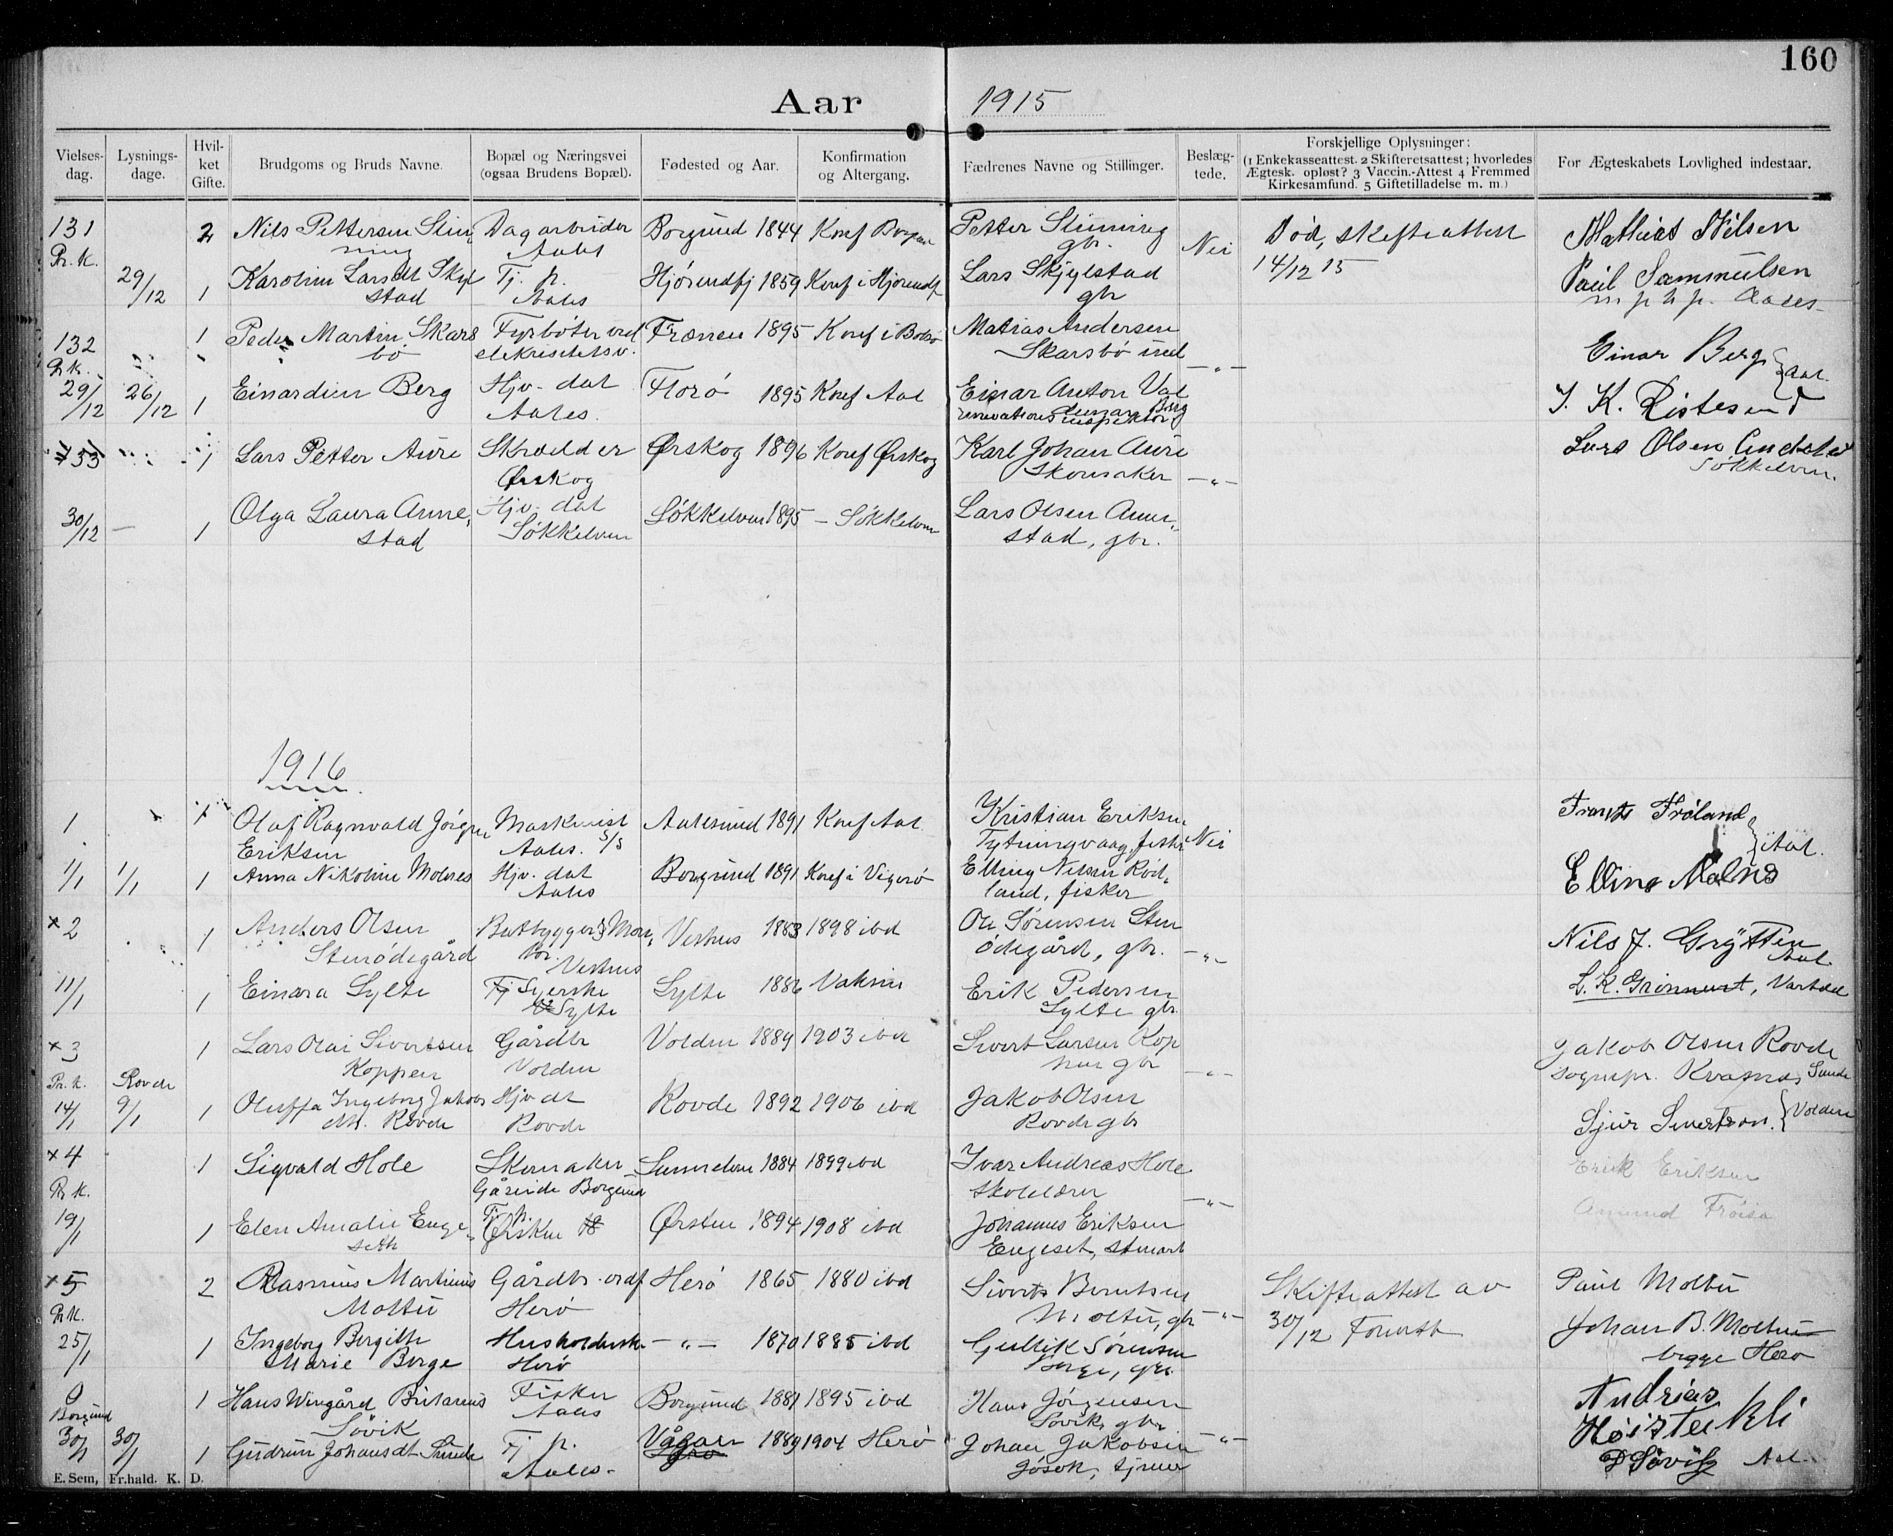 160
Aar 1915
Vielses-dag. Lysnings-dage. Hvil-ket Gifte. Brudgoms og Bruds Navne. Bopæl og Næringsvei (ogsaa Brudens Bopæl). Fødested og Aar. Konfirmation og Altergang. Fædrenes Navne og Stillinger. Beslæg-tede. Forskjellige Oplysninger: (1 Enkekasseattest. 2 Skifteretsattest; hvorledes Ægtesk. opløst? 3 Vaccin.-Attest 4 Fremmed Kirkesamfund. 5 Giftetilladelse m. m.) For Ægteskabets Lovlighed indestaar.
131 2 Nils Pettersen Slin- Dagarbeider Borgund 1844 Konf Borgun Petter Slinning Nei Død, skifteattest Mathias Nilsen
Pr. K. ning Aales gbr. 14/12 15
29/12 1 Karolin Larsdt Skyl Tj. p. Hjørendfj 1859 Konf i Hjørendf Lars Skjylstad Paul Sammulsen
stad Aales gbr
132 1 Peder Martin Skars Fyrbøter ved Frænen 1895 Konf i Bolsø Matias Andersen
Pr. K. bø elektricitetsv. Skarsbø ind -"- Einar Berg
29/12 26/12 1 Einardine Berg Hjv. dat Florø 1895 Konf Aal Einar Anton Val Aal.
Aales. demar Berg J. K. Ristesund
renovationsinspektør
133 1 Lars Petter Aure Skrædder Ørskog 1896 Konf Ørskog Karl Johan Aure Lars Olsen Andestad
Ørskog Skomaker -"- Søkkelven.
30/12 — 1 Olga Laura Anne, Hjv. dat Søkkelven 1895 — Søkkelven Lars Olsen Anne,
stad Søkkelven stad, gbr.
1916
1 1 Olaf Ragnvald Jørgen Maskinist Aalesund 1891 Konf Aal Kristian Eriksen Frants Frøland
Eriksen Aales. S/S Tytingvaag, fisker Nei Aal.
1/1 1/1 1 Anna Nikoline Molnes Hjv. dat Borgund 1891 Konf i Vigerø Elling Nilsen Rød, Elling Molnes
Aales land, fisker
×2 1 Anders Olsen Baatbygger & Mon, 1883 1898 ibd Ole Sørensen Sten Nils J. Grytten
Stenødegård tør. Vestnes ødegård, gbr. -"- Aal.
11/1 1 Einara Sylte Tj Syerske Sylte 1886 Vaksin Erik Pedersen
Sylte Sylte gbr.
×3 1 Lars Olai Sivertsen Gårdbr Volden 1889 1903 ibd Sivert Larsen Kop Jakob Olsen Rovde
Pr. K. Rovde Koppen Volden pen gbr -"- sognepr. Kvasnes Sunde
14/1 9/1 1 Oluffa Ingeborg Jakobs Hjv dt Rovde 1892 1906 ibd Jakob Olsen Sjur Sivertsen. Volden
dtr. Rovde Rovde Rovde gbr
×4 1 Sigvald Hole Skomaker 1884 1899 ibd Ivar Andreas Hole Erik Eriksen
Pr. K. Gåseide Borgund skolelærer -"- Amund Frøisa
19/1 1 Elen Amalie Enge Tj. p. Ørsten 1894 1908 ibd Johannes Eriksen
seth Ørsten Engeset,
×5 2 Rasmus Martinus Gårdbr. ordf Herø 1865 1880 ibd Sivert Berntsen Skifteattest av Paul Moltu
Pr. K. Moltu Herø Moltu, gbr -"- 30/12
25/1 1 Ingeborg Bergitte Husholderske -"- 1870 1885 ibd Gullik Sørensen Johan B. Moltu
Marie Berge Herø Berge, gbr begge Herø
6 1 Hans Wingård Britanius Fisker Borgund 1881 1895 ibd Hans Jørgensen Andreas
Borgund Søvik Aales Søvik, gbr Høistakli
30/1 30/1 1 Gudrun Johansdt Sunde Tj. p. Vågan 1889 1904 Herø Johan Jakobsen -"- P Søvik Aal
Aales. Jøsok,
E. Sem, Fr.hald. K. D.